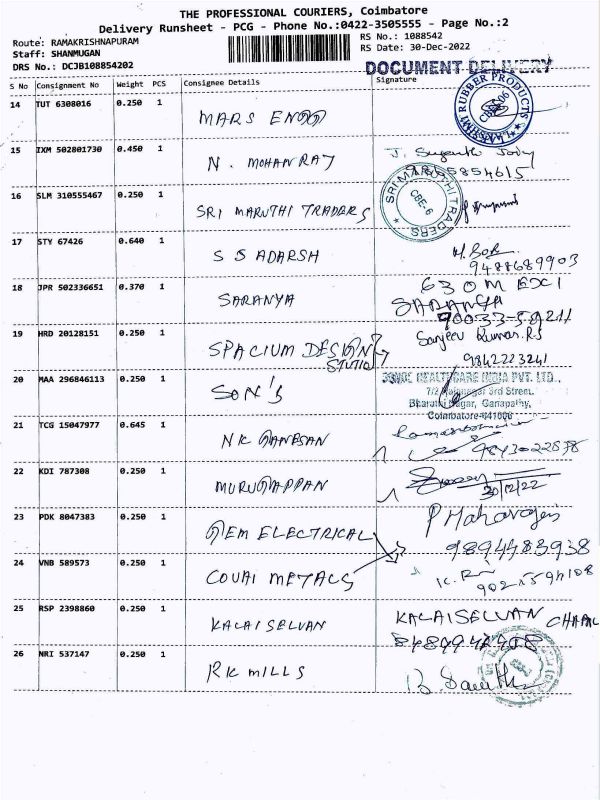 THE PROFESSIONAL COURIERS, Coimbatore
Delivery Runsheet - PCG - Phone No.:0422-3505555 - Page No.:2
Route: RAMAKRISHNAPURAM RS No.: 1088542
Staff: SHANMUGAN RS Date: 30-Dec-2022
DRS No.: DCJB108854202
DOCUMENT DELIVERY
S No Consignment No Weight PCS Consignee Details Signature
14 TUT 6308016 0.250 1 MARS ENGG
RUBBER PRODUCTS
15 IXM 502801730 0.450 1 N. MOHANRAJ
16 SLM 310555467 0.250 1 SRI MARUTHI TRADERS
SRI MARUTHI TRADERS CBE-6
17 STY 67426 0.640 1 S S ADARSH
9488689903
18 JPR 502336651 0.370 1 SARANYA
19 HRD 20128151 0.250 1 SPACIUM DESIGN
STUDIO
Sanjeev Kumar. R.S
9842223241
20 MAA 296846113 0.250 1 SON'S
HEALTHCARE INDIA PVT. LTD.,
3rd Street,
Bharathi Nagar, Ganapathy,
Coimbatore-641006
21 TCG 15047977 0.645 1 NK GANESAN
98430 22838
22 KDI 787308 0.250 1 MURUGAPPAN
30/12/22
23 PDK 8047383 0.250 1 GEM ELECTRICAL
P Maharogin
9894483938
24 VNB 589573 0.250 1 COVAI METALS
25 RSP 2398860 0.250 1 KALAISELVAN
KALAISELVAN
26 NRI 537147 0.250 1 RK MILLS